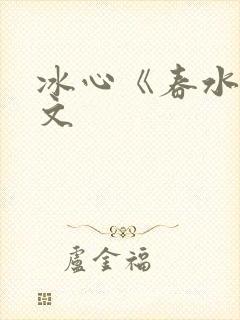 冰心《春水
文
盧金福